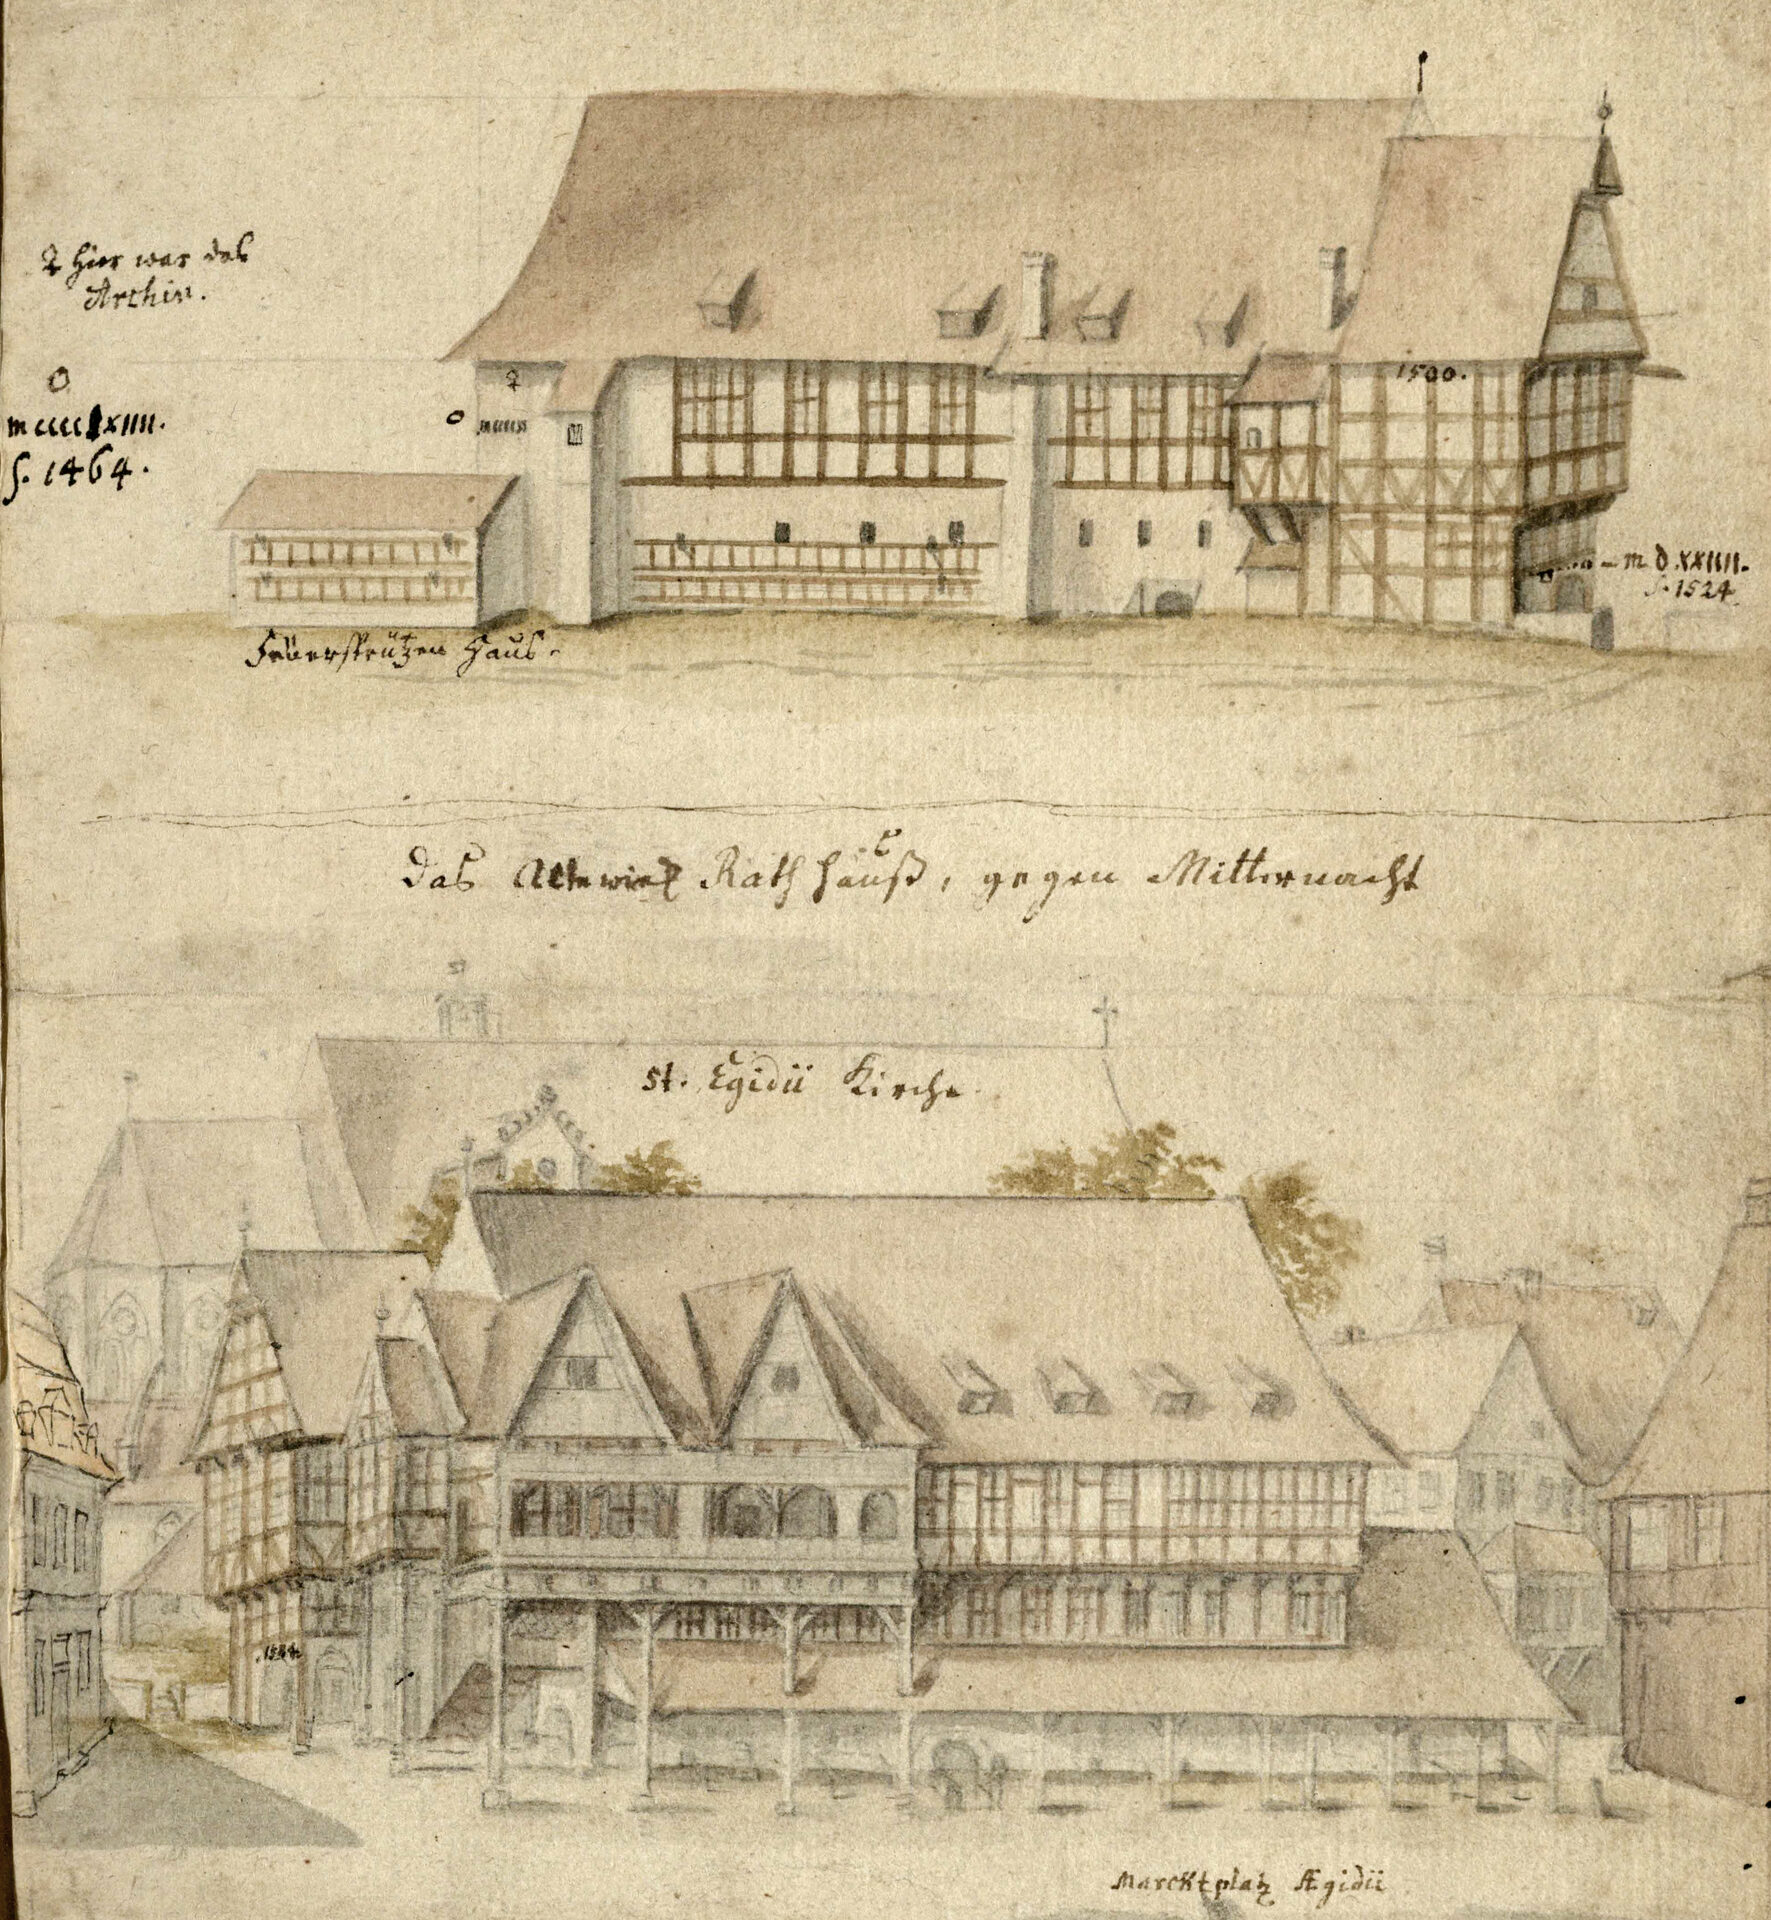 ☿ Hier war das
Archiv.
O
mccccLxIIII.
s. 1464.
☿
O
1500.
m d xxIIII.
s. 1524
Feüersprützen Haus.
Das Altewiek Rathhauß, gegen Mitternacht
St. Egidii Kirche.
1524
Marcktplatz Ægidii